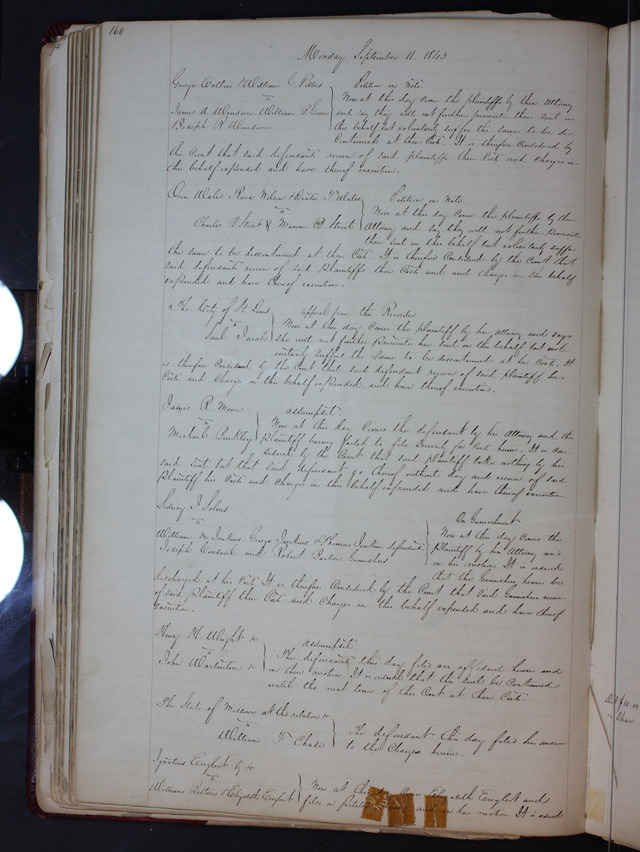 160
Monday September 11. 1843
George Collier & William G. Pettus
vs
James A William P
Joseph R
Petition in Note
Now at this day come the plaintiffs by their Attorney
and say they will not further prosecute their suit in
this behalf but voluntarily suffer the same to be dis-
continued at their Costs. It is therefore Considered by
the Court that said defendants recover of said plaintiffs their Costs and Charges in
this behalf expended and have thereof execution.
Wales &
vs
Charles B Street & B. Street
Petition in Note
Now at this day Come the plaintiffs by their
Attorney and say they will not further Prosecute
their suit in this behalf but voluntarily suffer
the same to be discontinued at their Costs. It is therefore Considered by the Court that
said defendants recover of said Plaintiffs their Costs and and Charges in this behalf
expended and have thereof execution.
The City of St Louis
vs
Jacobs
appeal from the Recorder
Now at this day Comes the plaintiff by her attorney and says
she will not further Prosecute her suit in this behalf but vol-
untarily suffers the same to be discontinued at her Costs. It
is therefore Considered by the Court that said defendant recover of said Plaintiff his
Costs and Charges in this behalf expended and have thereof execution.
James R. Moore
vs
Michael Buckley
assumpsit
Now at this day Comes the defendant by his Attorney and the
Plaintiff having failed to file for Costs herein. It is Con-
sidered by the Court that said plaintiff take nothing by his
said suit but that said defendant go thereof without day and recover of said
Plaintiff his Costs and Charges in this behalf expended and have thereof execution.
Sidney J.
vs
William M Jenkins George Jenkins & Thomas Jenkins defendants
Joseph and Robert Garnishees
On Garnishment
Now at this day Come the
Plaintiff by his Attorney and
on his motion It is ordered
that the Garnishees herein be
discharged at his Costs. It is therefore Considered by the Court that said Garnishees recover
of said Plaintiff their Costs and Charges in this behalf expended and have thereof
execution.
Henry H. Wright &c
vs
John &c
assumpsit
The defendants this day filed an affidavit herein and
on their motion It is ordered that this suit be Continued
until the next term of this Court at their Costs.
The State of Missouri at the relation &c
vs
William F. Chase
The defendant this day filed his answer
to the Charges herein.
Ignatius English by &c
vs
William & Elizabeth English
Now at this day Come Elizabeth English and
files a petition and on her motion It is ordered